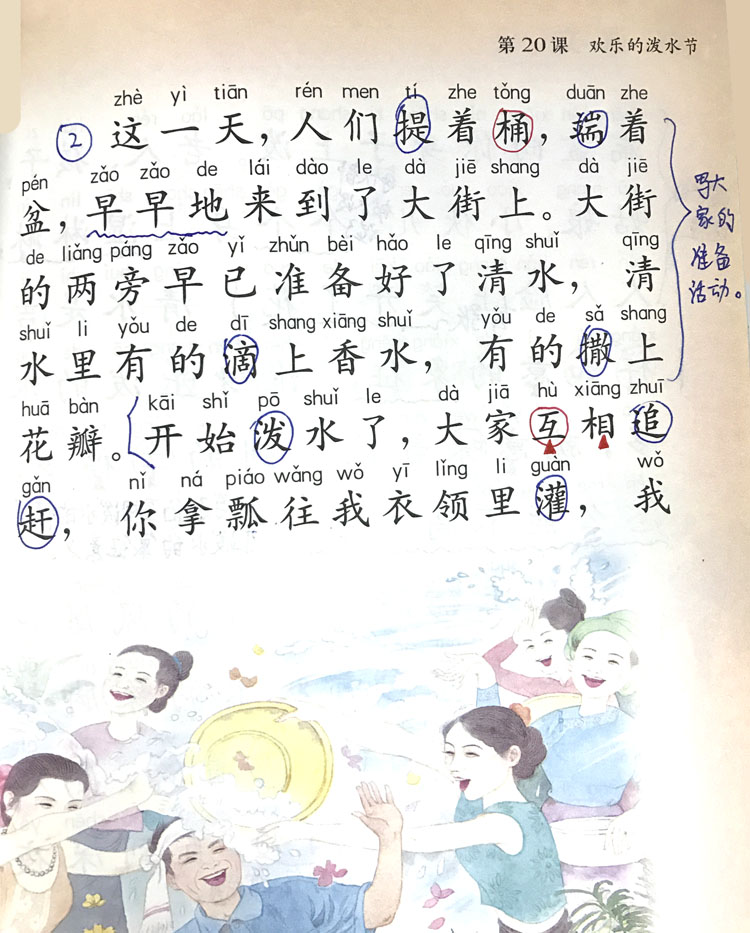 第20课 欢乐的泼水节
zhè yì tiān rén men tí zhe tǒng duān zhe
② 这一天，人们提着桶，端着
pén zǎo zǎo de lái dào le dà jiē shang dà jiē
盆，早早地来到了大街上。大街
de liǎng páng zǎo yǐ zhǔn bèi hǎo le qīng shuǐ qīng
的两旁早已准备好了清水，清
shuǐ li yǒu de dī shang xiāng shuǐ yǒu de sǎ shang
水里有的滴上香水，有的撒上
huā bàn kāi shǐ pō shuǐ le dà jiā hù xiāng zhuī
花瓣。开始泼水了，大家互相追
gǎn nǐ ná piáo wǎng wǒ yī lǐng li guàn wǒ
赶，你拿瓢往我衣领里灌，我
写大
家的
准备
活动。